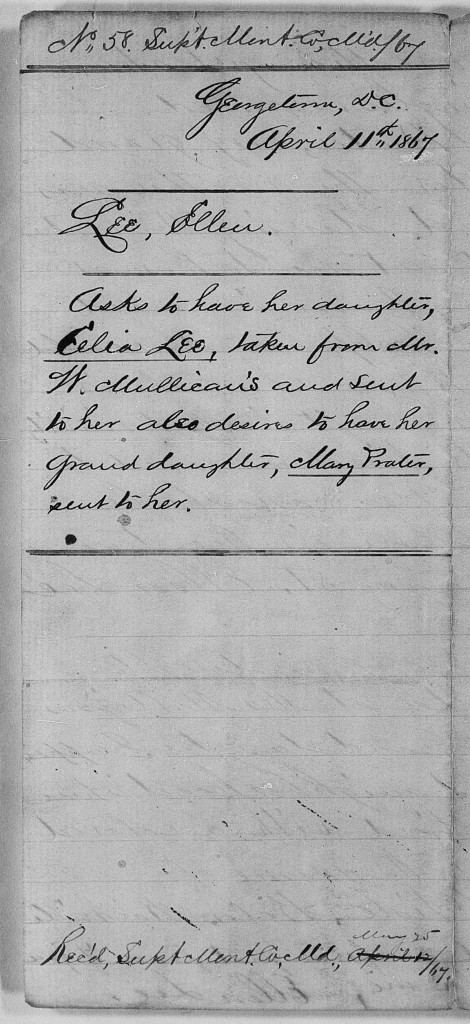 No. 58. Supt. Mont. Co, Md./67
Georgetown, D.C.
April 11th 1867
Lee, Ellen.
Asks to have her daughter,
Celia Lee, taken from Mr.
W. Mullican's and sent
to her also desires to have her
grand daughter, Mary Prater,
sent to her.
May 25
Rec'd, Supt Mont. Co, Md., April 12/67.